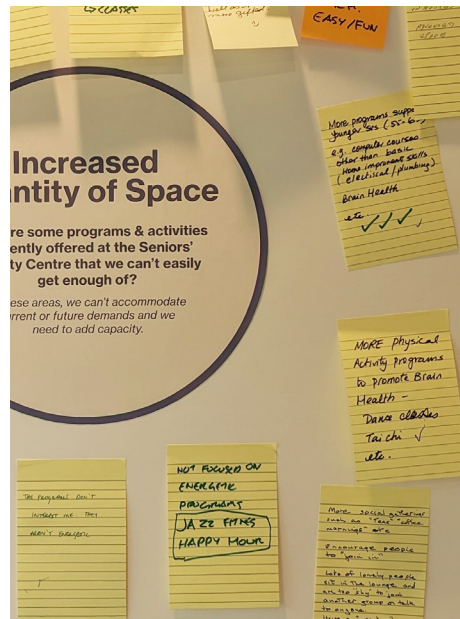 CLASSES
EASY/FUN
Increased
ntity of Space
re some programs & activities
ently offered at the Seniors'
ty Centre that we can't easily
get enough of?
ese areas, we can't accommodate
rrent or future demands and we
need to add capacity.
More programs suppo
younger srs (55-6
e.g. computer courses
other than basic
Home improment skills
(electrical/plumbing)
Brain Health
etc
MORE Physical
Activity programs
to promote Brain
Health -
Dance classes
Tai chi
etc.
THE PROGRAMS DON'T
INTEREST ME. THEY
AREN'T ENERGETIC
NOT FOCUSED ON
ENERGETIC
PROGRAMS
JAZZ
HAPPY HOUR
More social gatherings
such as "Teas"
mornings" etc
Encourage people
to "join in"
Lots of lonely people
sit in the lounge and
are too "shy" to join
another group or talk
to anyone.